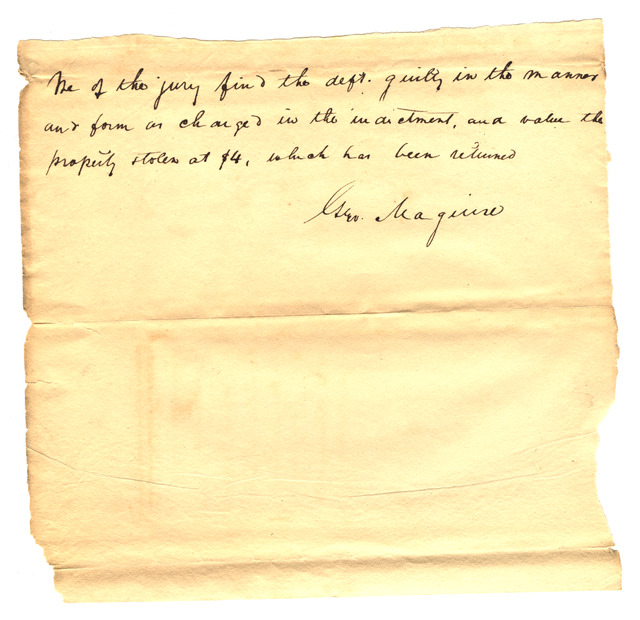 We of the jury find the deft. guilty in the manner
and form as charged in the indictment, and value the
property stolen at $4, which has been returned
Geo. Maguire